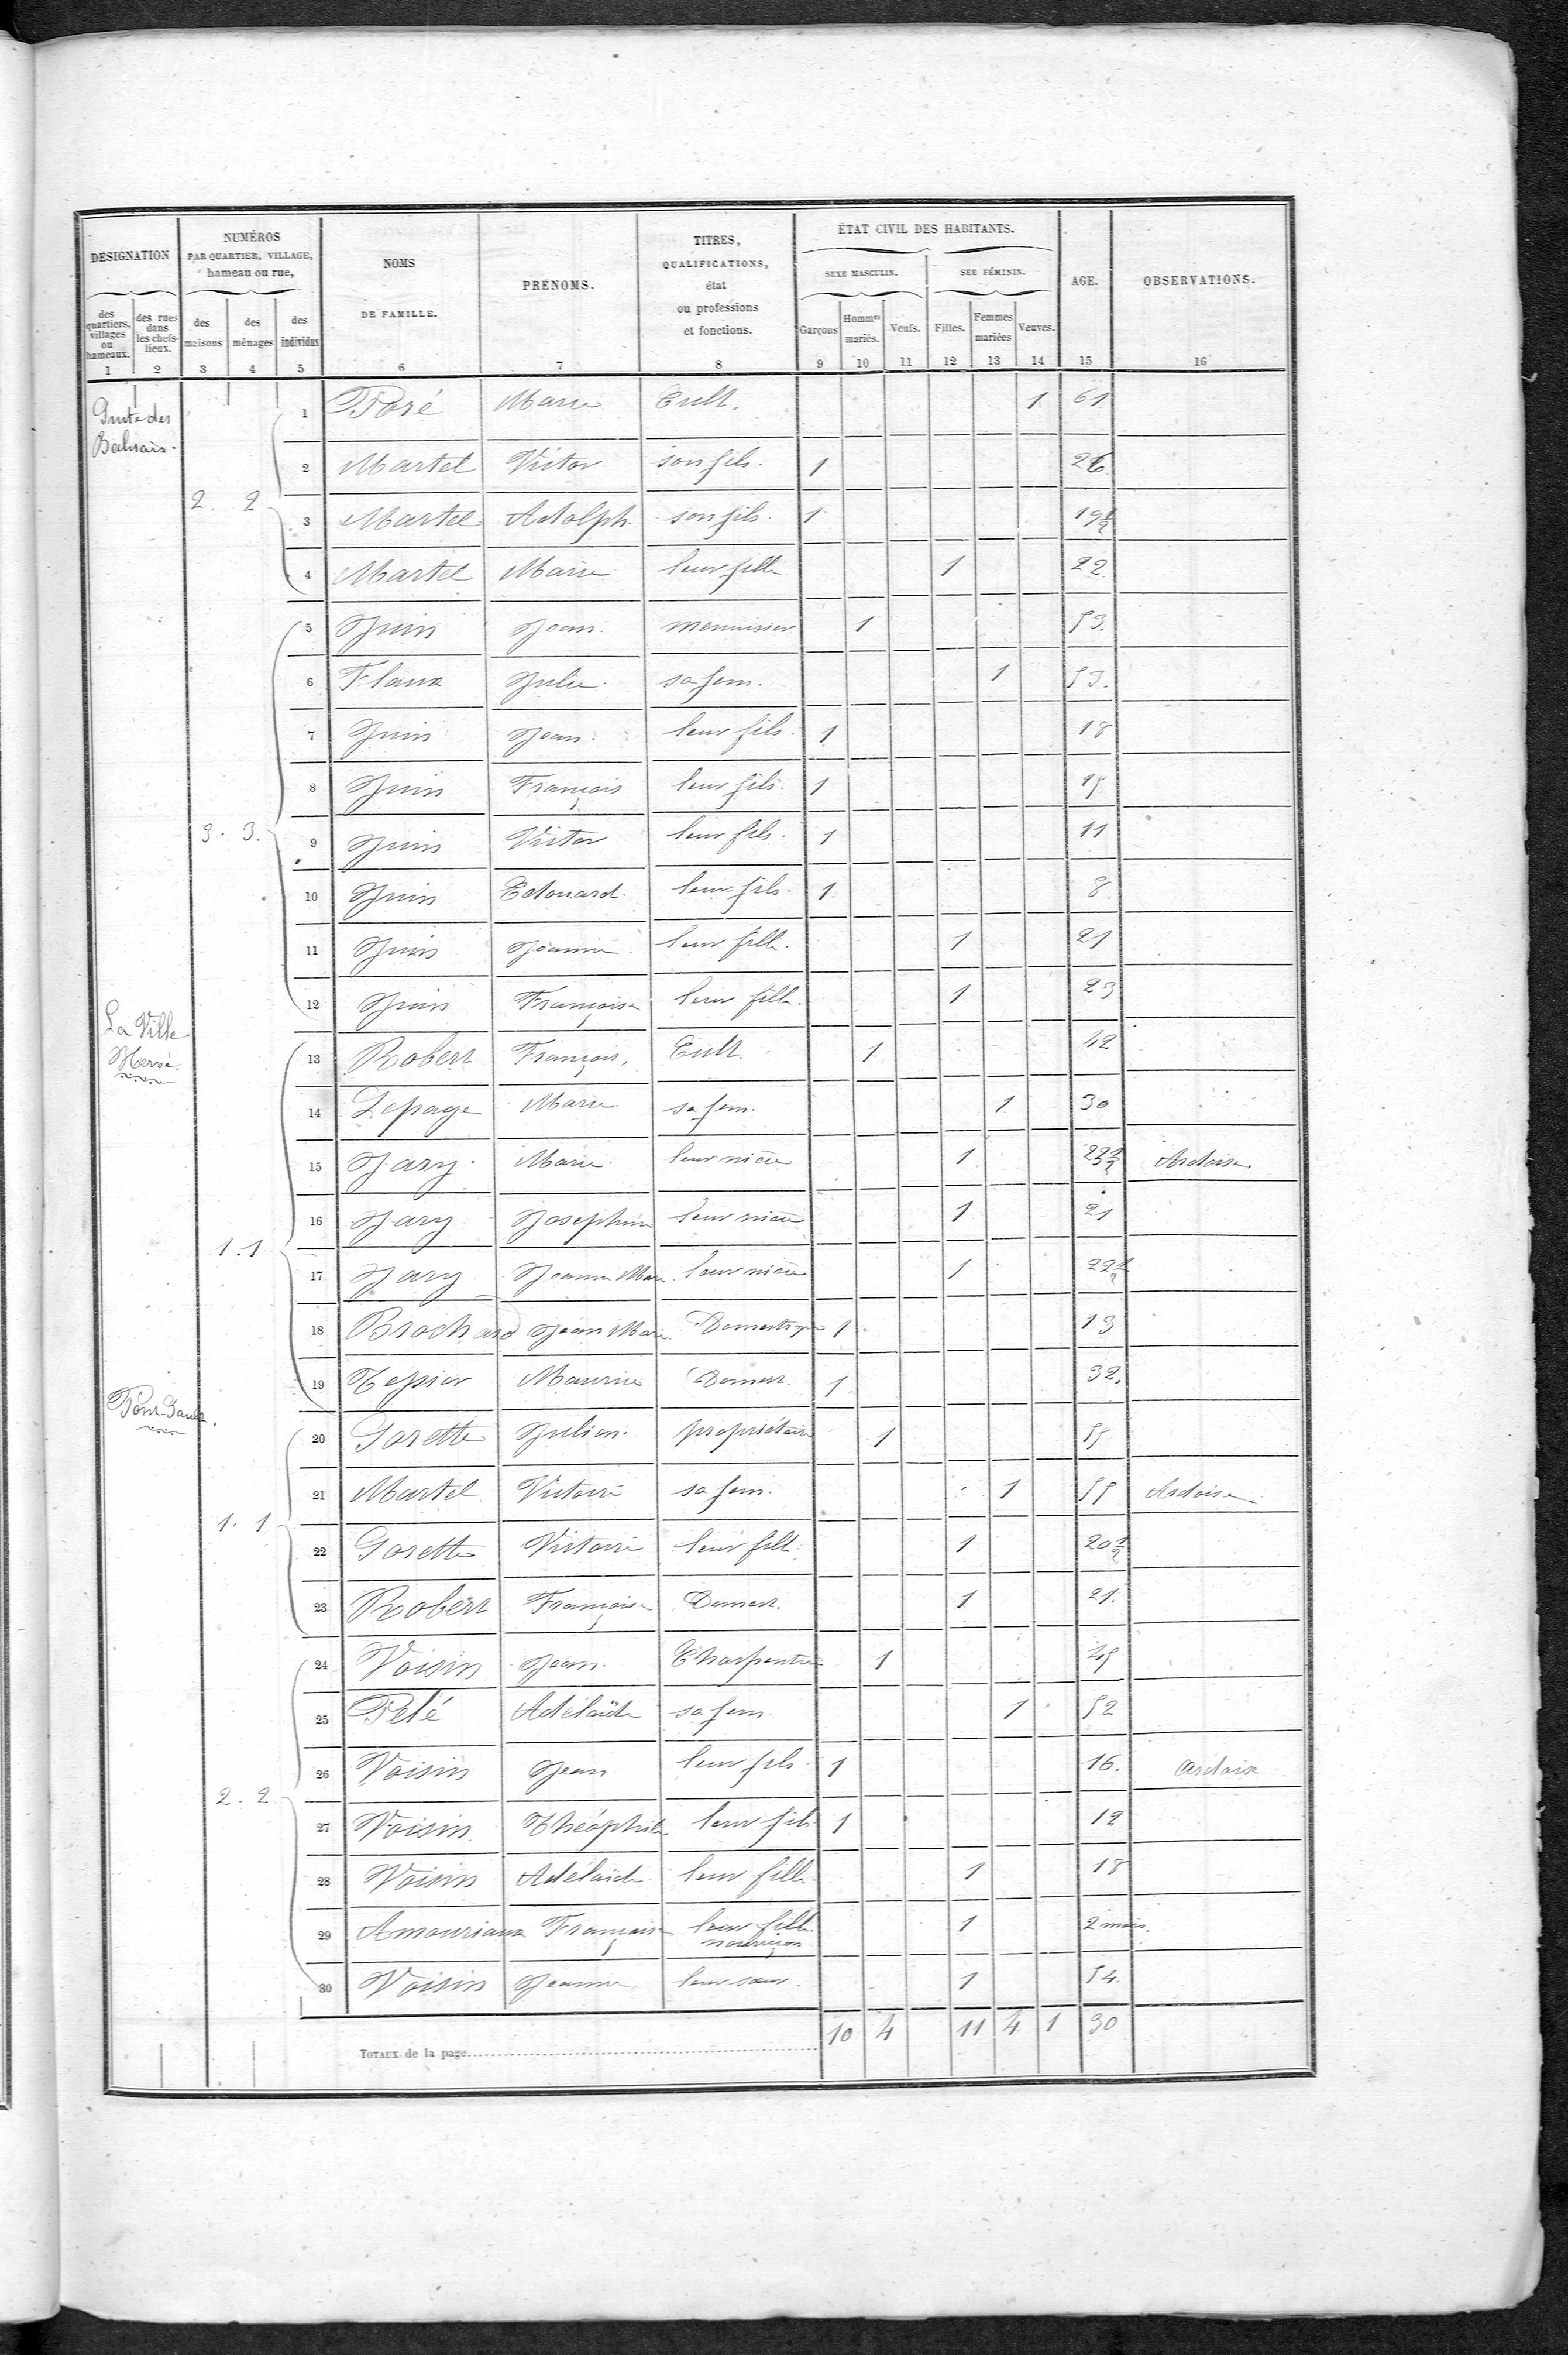 DÉSIGNATION
NUMÉROS PAR QUARTIER, VILLAGE, hameau ou rue,
NOMS DE FAMILLE.
PRÉNOMS.
TITRES, QUALIFICATIONS, état ou professions et fonctions.
ÉTAT CIVIL DES HABITANTS.
SEXE MASCULIN.
SEE FÉMININ.
AGE.
OBSERVATIONS.
des quartiers, villages ou hameaux.
des rues dans les chefs-lieux.
des maisons
des ménages
des individus
Garçons
Hommes mariés.
Veufs.
Filles.
Femmes mariées
Veuves.
1 2 3 4 5 6 7 8 9 10 11 12 13 14 15 16
des
1 Poré Marie Cult. 1 61
2 Martel Victor son fils. 1 26
2. 2
3 Martel Adolph. son fils. 1 19 1/2
4 Martel Marie leur fille 1 22
5 Juin Jean. menuisier 1 53.
6 Flaux Julie. sa fem. 1 53.
7 Juin Jean. leur fils. 1 18
8 Juin François leur fils. 1 15
3. 3.
9 Juin Victor leur fils. 1 11
10 Juin Edouard. leur fils. 1 8
11 Juin Jeanne leur fille. 1 21
12 Juin Françoise leur fille. 1 23
La Ville Hervé.
13 Robert François. Cult. 1 42
14 Lepage Marie sa fem. 1 30
15 Jary. Marie. leur nièce 1 Ardoise
16 Jary Josephine leur nièce 1 21
1. 1
17 Jary Jeanne Marie leur nièce 1 22 1/2
18 Brochard Jean Marie Domestique 1 13
19 Tessier Maurice Domest. 1 32.
20 Gorette Julien. propriétaire 1 55
21 Martel Victoire sa fem. 1 55 Ardoise
1. 1
22 Gorette Victoire leur fille 1 20 1/2
23 Robert Françoise Domest. 1 21.
24 Voisin Jean. Charpentier 1 45
25 Pelé Adélaïde sa fem 1 52
26 Voisin Jean leur fils. 1 16. Ardoise
2. 2
27 Voisin Théophile leur fils 1 12
28 Voisin Adélaïde leur fille. 1 18
29 Amouriaux Françoise leur fille nourriçon 1 2 mois.
30 Voisin Jeanne leur sœur. 1 54.
TOTAUX de la page 10 4 11 4 1 30